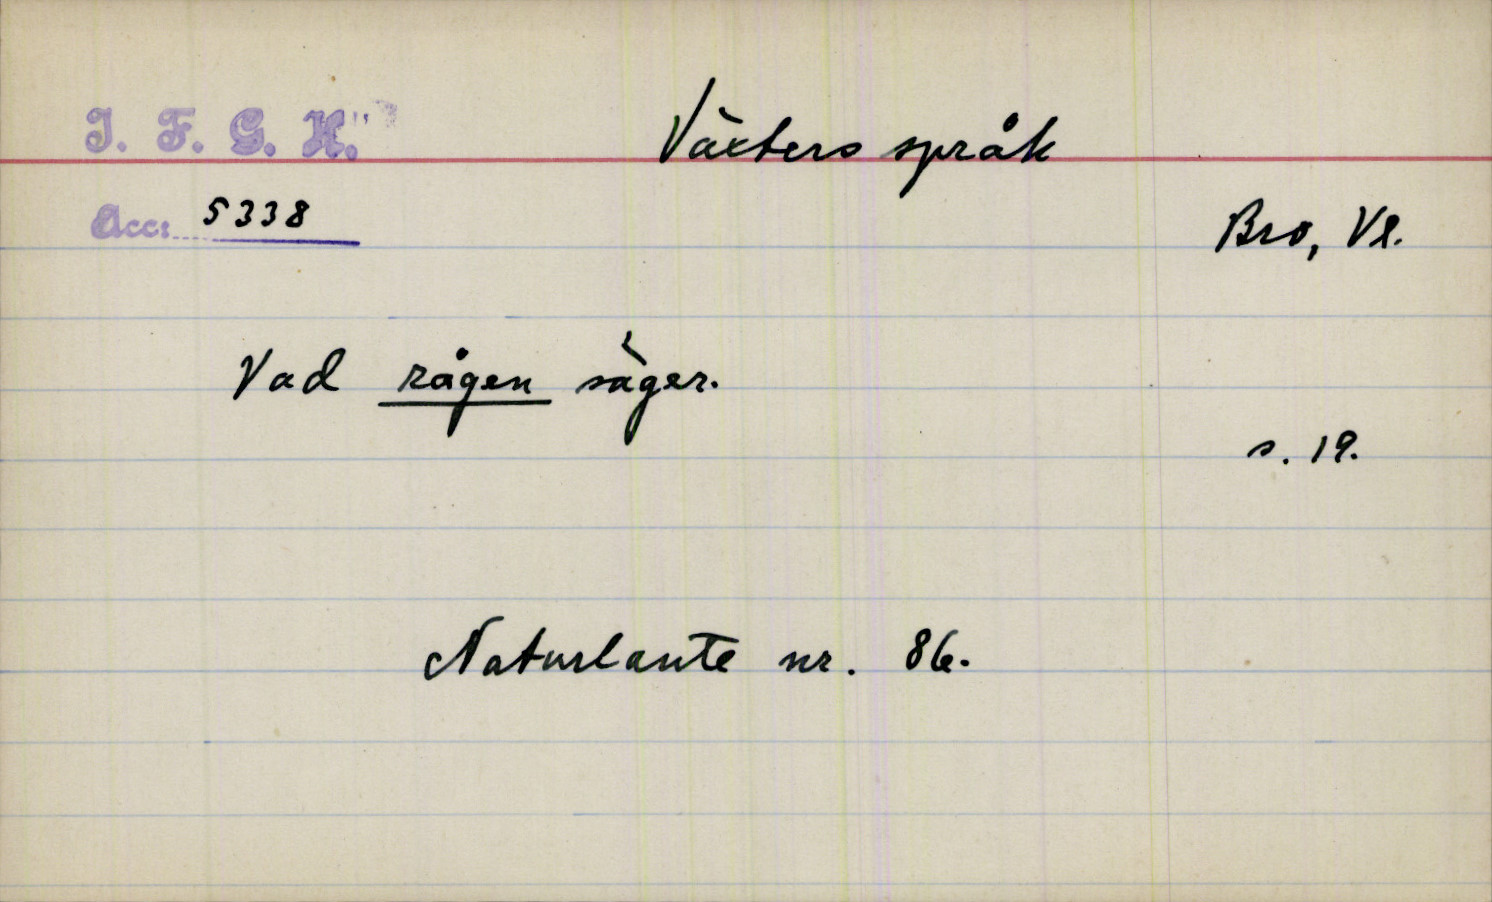 I. F. G. H. Växters språk
Acc: 5338
Bro, Vl.
Vad rågen säger.
s. 19.
Naturlaute nr. 86.